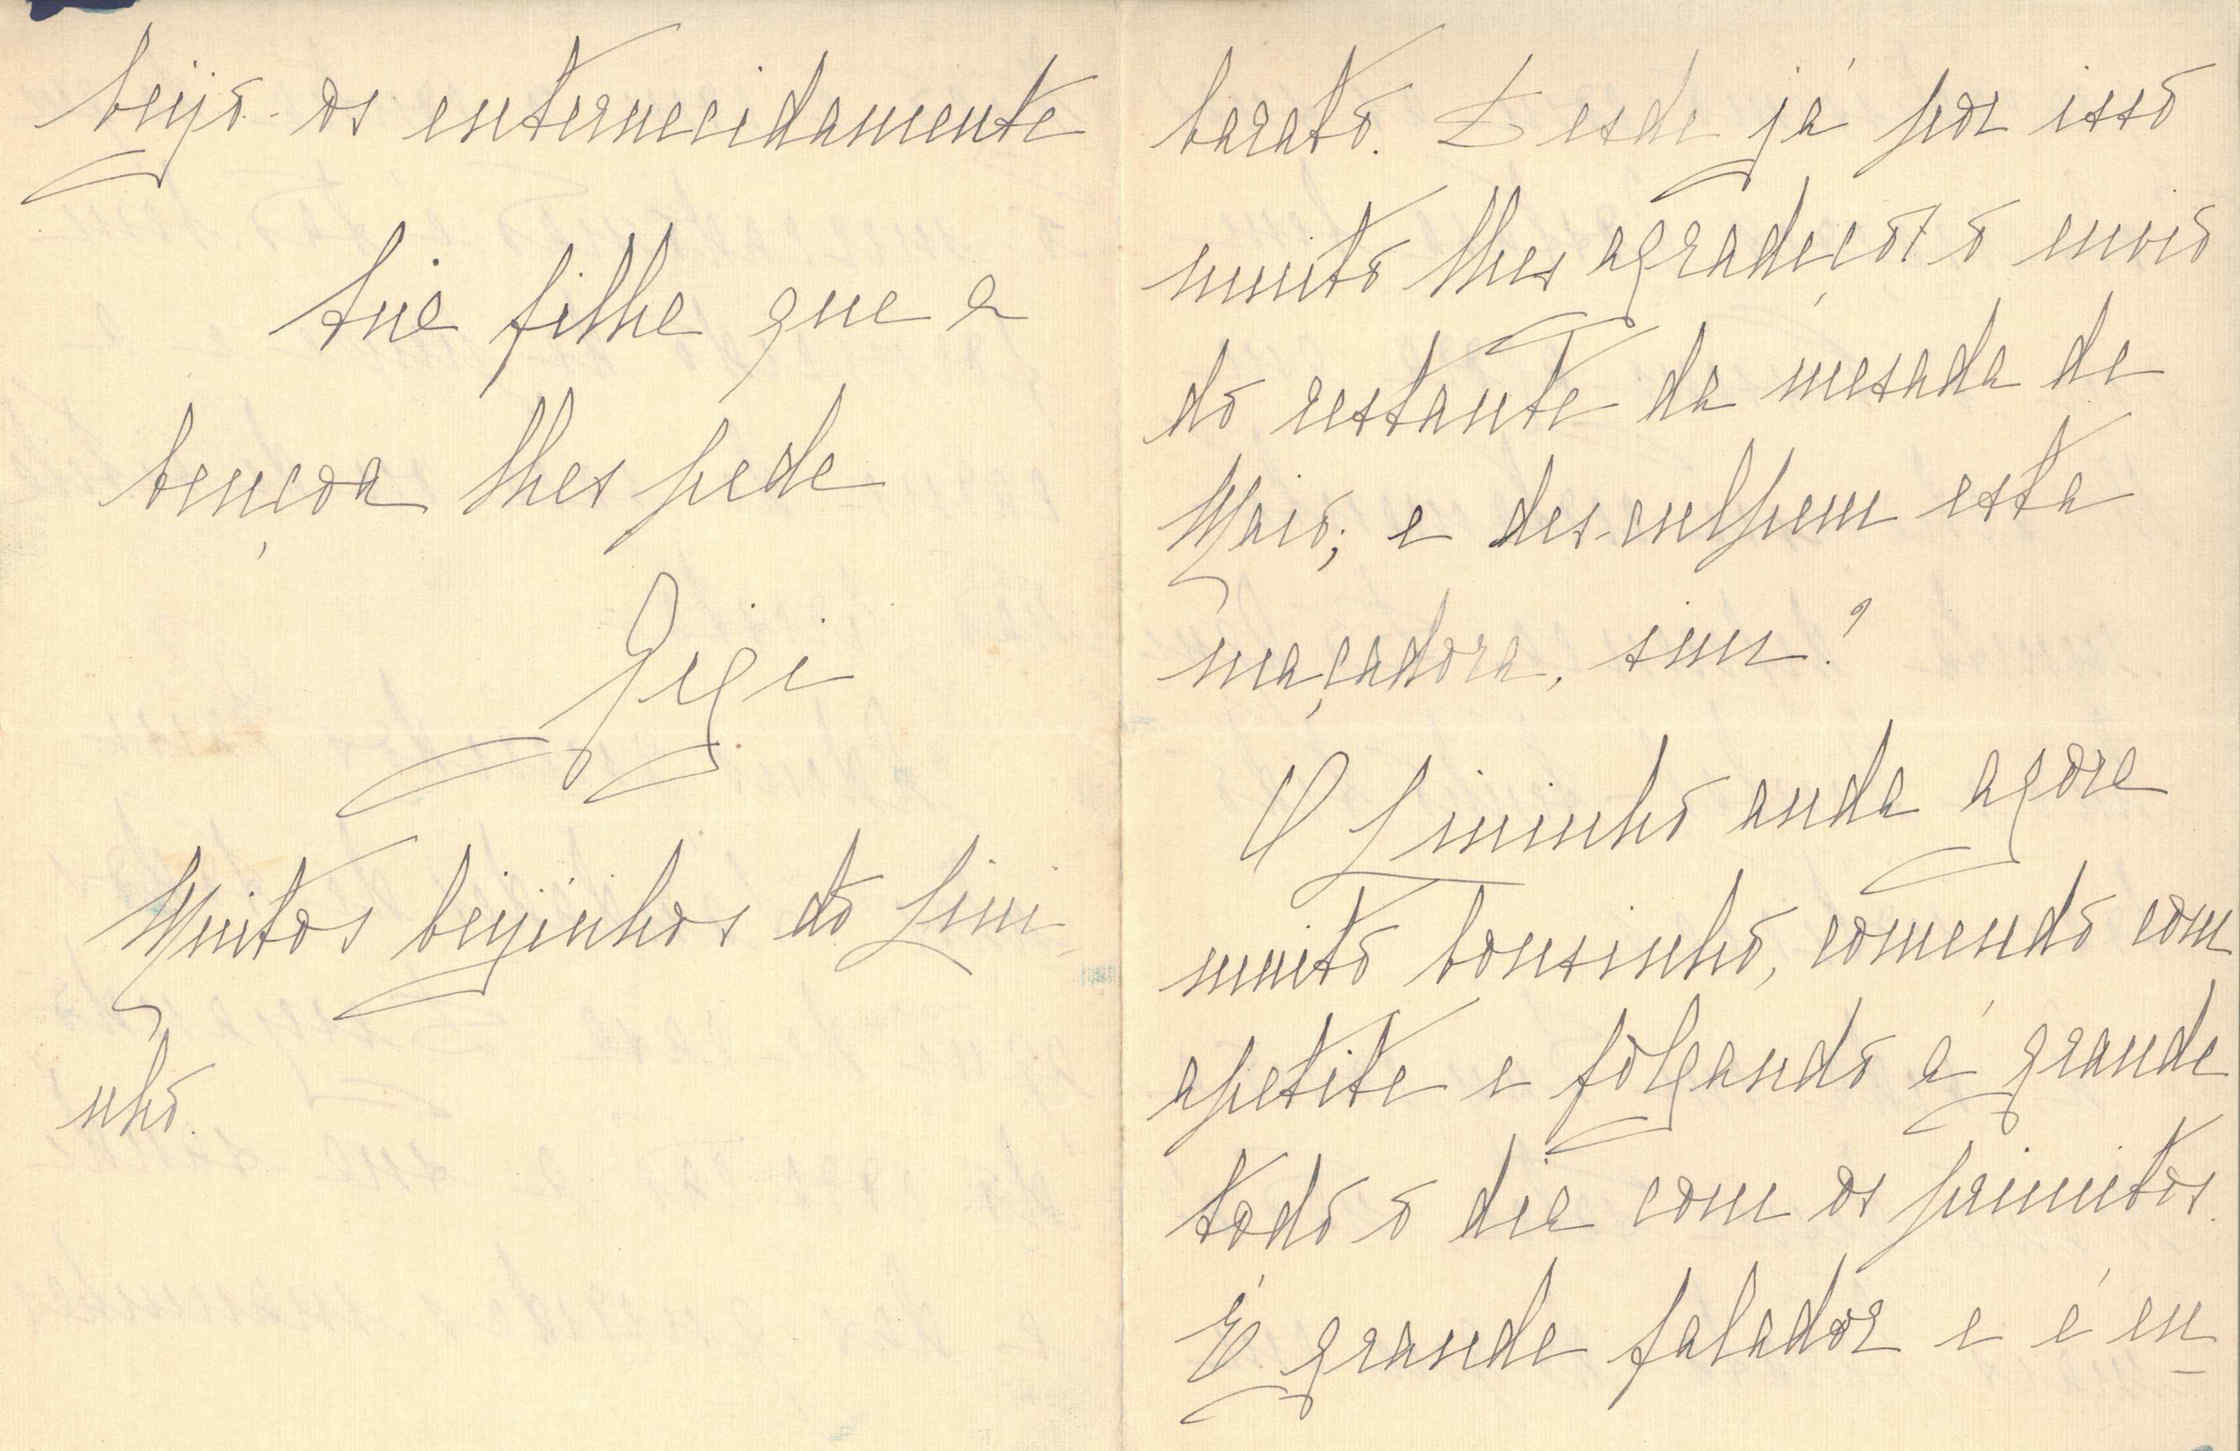 beijo-os enternecidamente
tua filha que a
bençoa lhes pede
Gigi
Muitos beijinhos do Lini-
nho.
barato. Desde já por isso
muito lhes agradeço o envio
do restante da mesada de
Maio; e des-culpem esta
maçadora, sim?
O Lininho anda agora
muito bonsinho, comendo com
apetite e folgando á grande
todo o dia com os primitos.
É grande falador e é en-